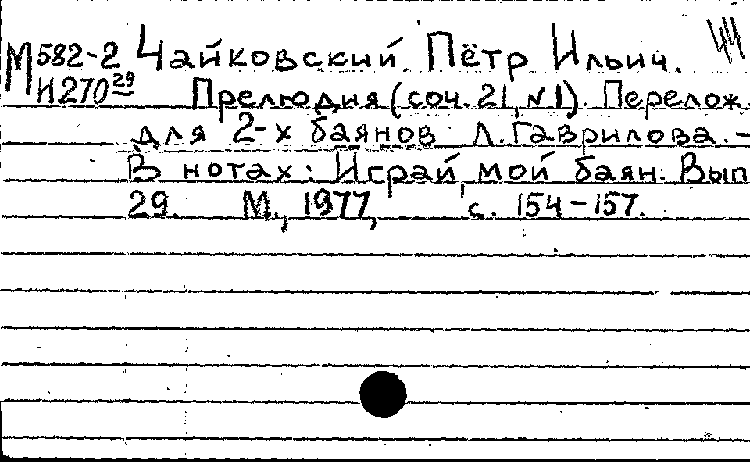 М 582-2 Чайковский Пётр Ильич. ЧЧ
И 270 29 Прелюдия (соч. 21, №1). Перелож.
для 2-х баянов Л. Гаврилова. –
В нотах: Играй, мой баян. Вып
29. М., 1977, с. 154–157.